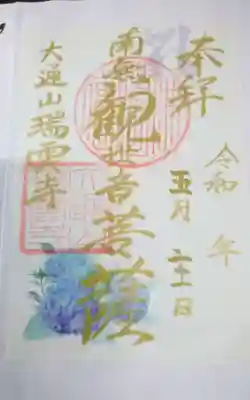 奉拝
令和 年
五月 日
南無観世音菩薩
大運山瑞雲寺